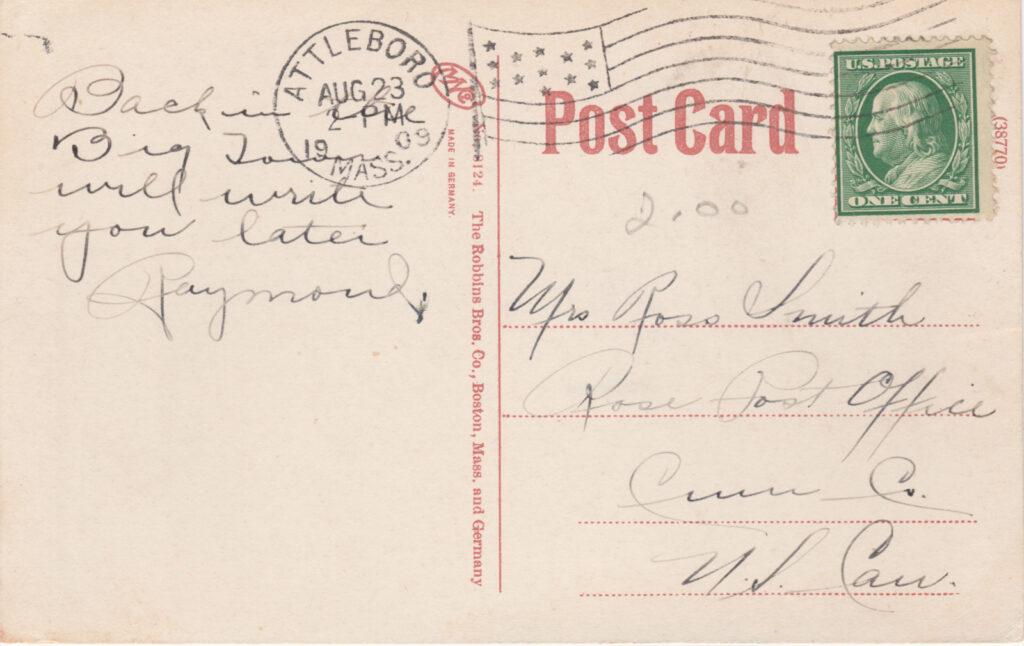 ATTLEBORO
AUG 23
2 PM
1909
MASS.
Back in the
Big Town
will write
you later
Raymond.
MADE IN GERMANY.
No. 8124. The Robbins Bros. Co., Boston, Mass. and Germany
Post Card
(38770)
U.S. POSTAGE
ONE CENT
2.00
Mrs Ross Smith
Rose Post Office
Co.
N.S. Can.